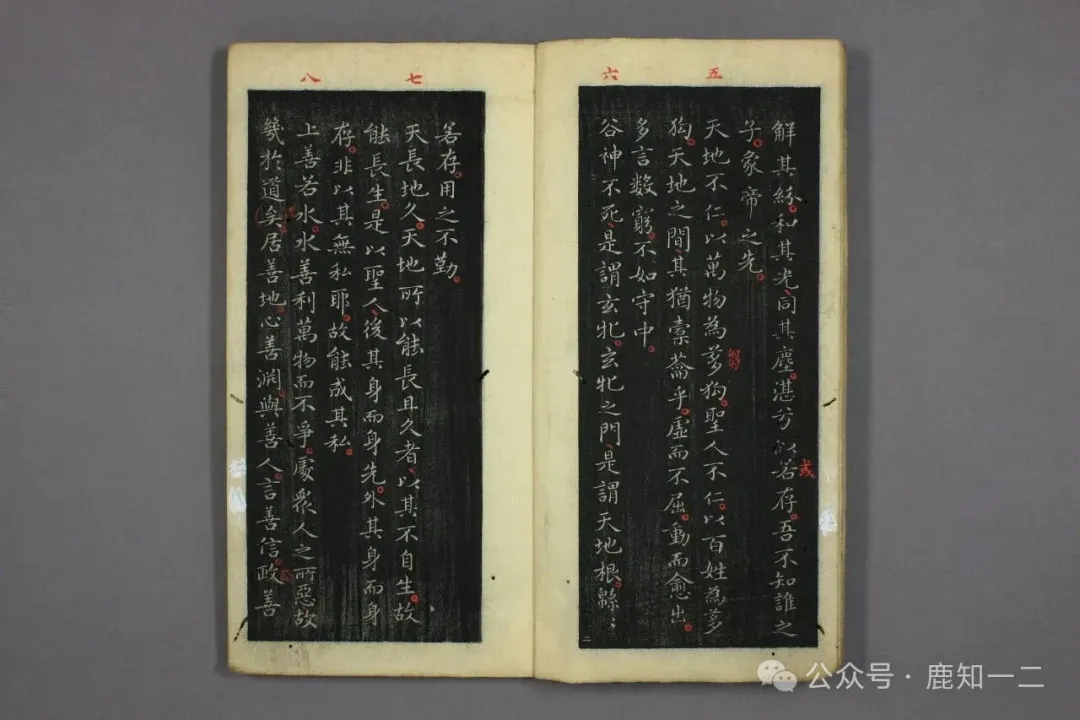 五
六
解其紛和其光同其塵湛兮似若存吾不知誰之
或
子象帝之先
天地不仁以萬物為芻狗聖人不仁以百姓為芻
狗天地之間其猶橐籥乎虛而不屈動而愈出
多言數窮不如守中
谷神不死是謂玄牝玄牝之門是謂天地根緜〻
二
七
八
若存用之不勤
天長地久天地所以能長且久者以其不自生故
能長生是以聖人後其身而身先外其身而身
存非以其無私耶故能成其私
上善若水水善利萬物而不爭處衆人之所惡故
幾於道矣居善地心善淵與善人言善信政善
公众号·鹿知一二